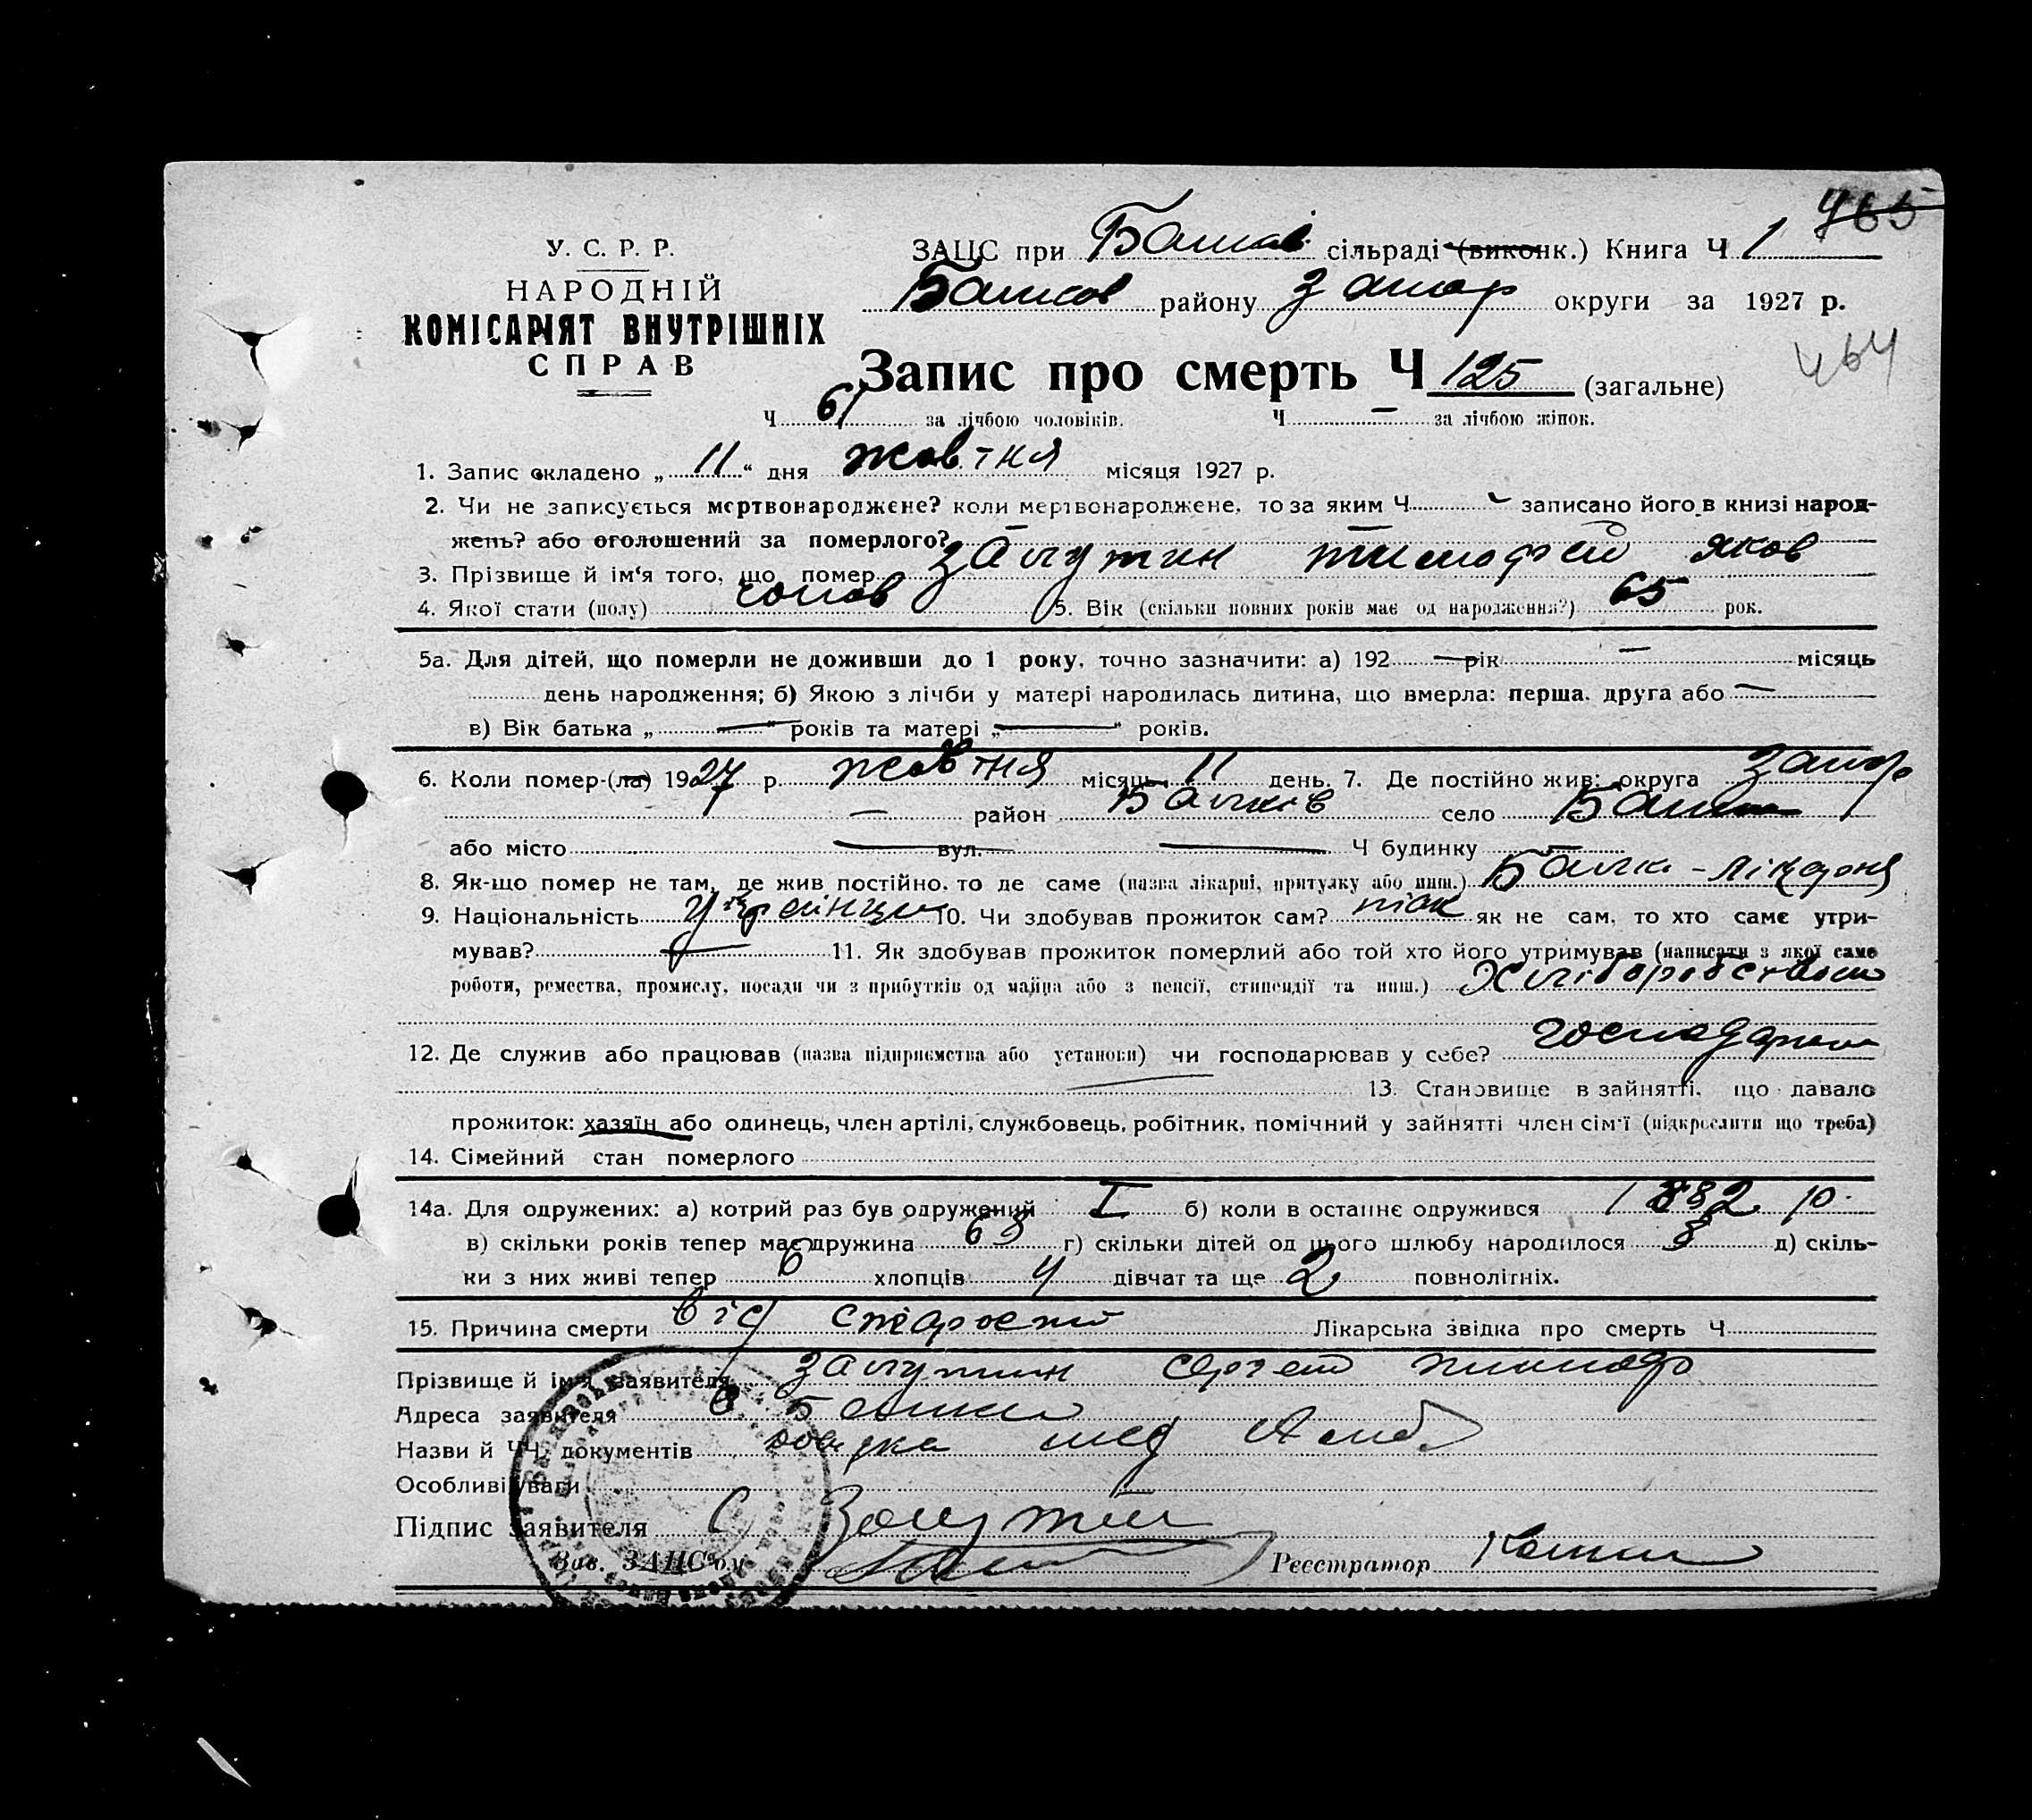 465
У. С. Р. Р.
НАРОДНІЙ
КОМІСАРІЯТ ВНУТРІШНІХ
СПРАВ
ЗАЦС при Балків сільраді (виконк.) Книга Ч 1
Балков району Запор округи за 1927 р.
464
Запис про смерть Ч 125 (загальне)
Ч 61 за лічбою чоловіків. Ч — за лічбою жінок.
1. Запис складено „ 11 “ дня жовтня місяця 1927 р.
2. Чи не записується мертвонароджене? коли мертвонароджене, то за яким Ч записано його в книзі народ-
жень? або оголошений за померлого? —
3. Прізвище й ім‘я того, що помер Залутин Тимофей Яков
4. Якої стати (полу) чолов 5. Вік (скільки повних років має од народження?) 65 рок.
5а. Для дітей, що померли не доживши до 1 року, точно зазначити: а) 192 — рік — місяць
день народження; б) Якою з лічби у матері народилась дитина, що вмерла: перша, друга або —
в) Вік батька „ — “ років та матері „ — “ років.
6. Коли помер-(ла) 1927 р. жовтня місяць 11 день. 7. Де постійно жив: округа Запор
— район Балків село Балки
або місто — вул. — Ч будинку —
8. Як-що помер не там, де жив постійно, то де саме (назва лікарні, притулку або инш.) Балки -
9. Національність українець 10. Чи здобував прожиток сам? так як не сам, то хто саме утри-
мував? — 11. Як здобував прожиток померлий або той хто його утримував (написати з якої саме
роботи, ремества, промислу, посади чи з прибутків од майна або з пенсії, стипендії та инш.) Хліборобством
12. Де служив або працював (назва підприємства або установи) чи господарював у себе? господарем
13. Становище в зайнятті, що давало
прожиток: хазяїн або одинець, член артілі, службовець, робітник, помічний у зайнятті член сім‘ї (підкреслити що треба)
14. Сімейний стан померлого
14а. Для одружених: а) котрий раз був одружений I б) коли в останнє одружився 1882 р.
в) скільки років тепер має дружина 63 г) скільки дітей од цього шлюбу народилося 8 д) скіль-
ки з них живі тепер 6 хлопців 4 дівчат та ще 2 повнолітніх.
15. Причина смерти від старости Лікарська звідка про смерть Ч
Прізвище й ім‘я заявителя Залутин Сергей Тимоф
Адреса заявителя с Балки
Назви й ЧЧ документів довідка мед
Особливі уваги
Підпис заявителя С Залутин
Зав. ЗАЦС‘ом Реєстратор